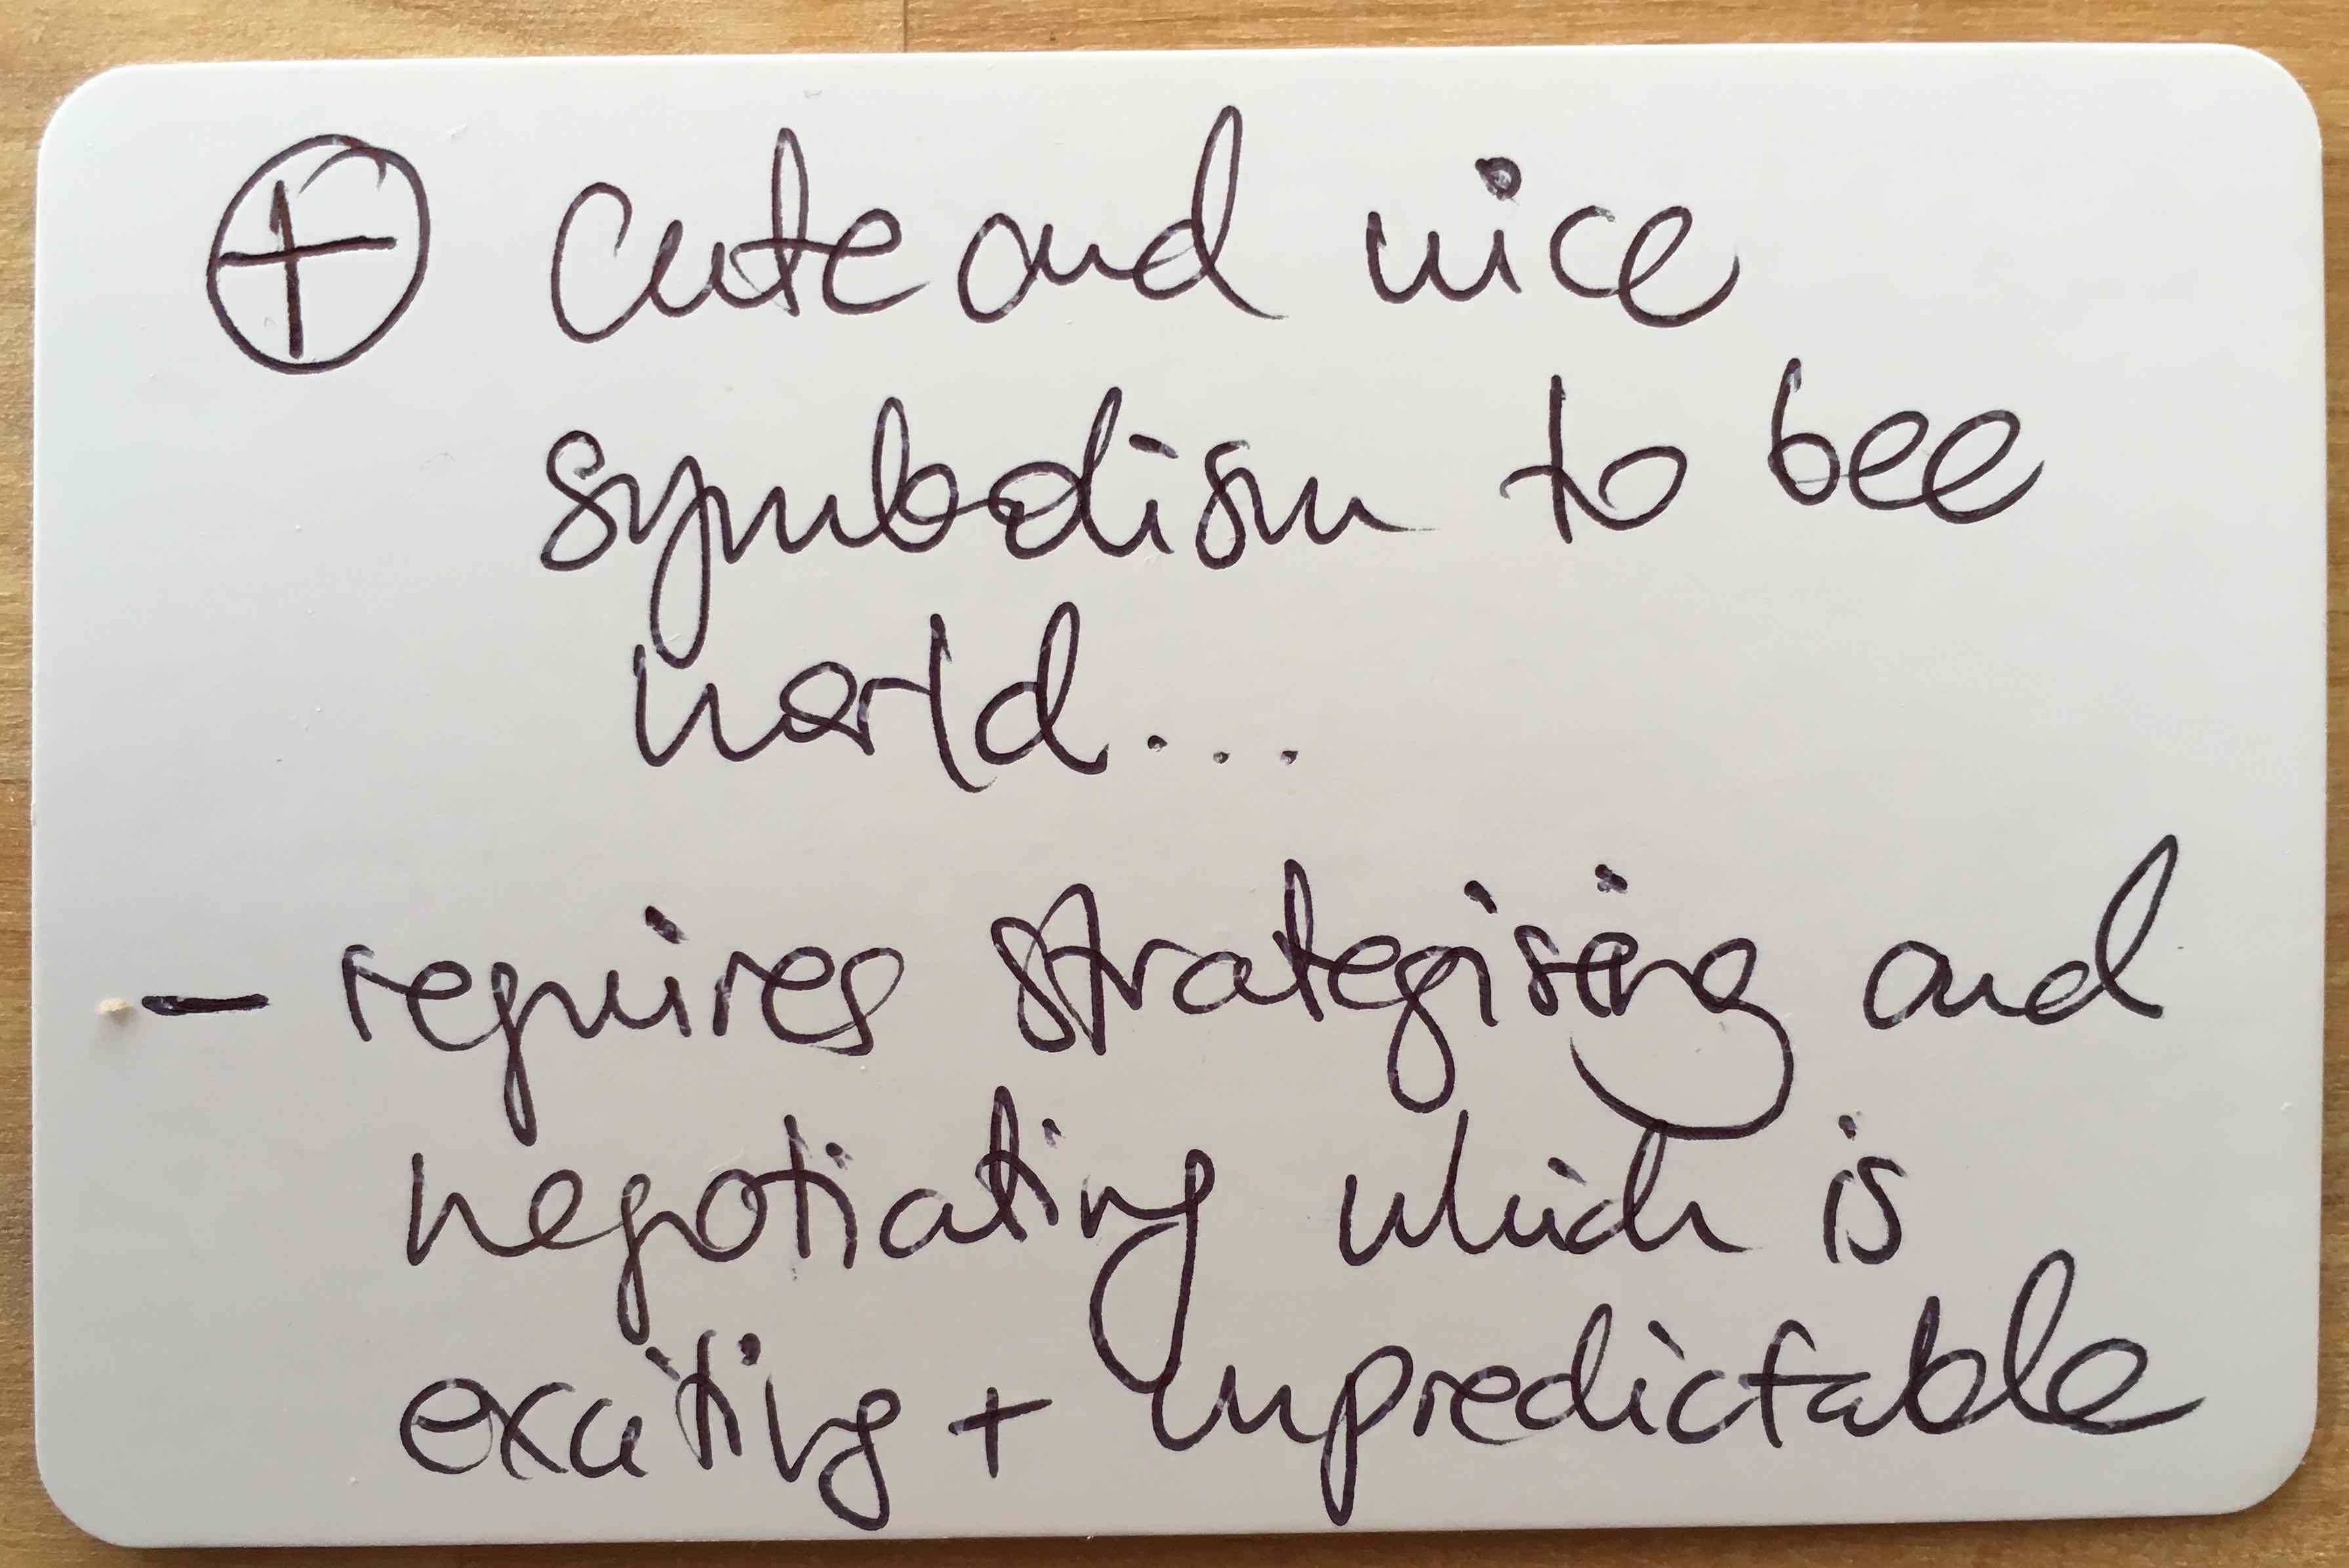 ⊕ cute and nice
symbolism to bee
world...
- requires strategising and
negotiating which is
exciting + unpredictable